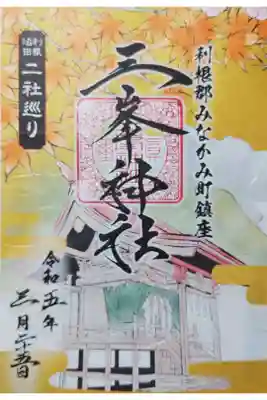 利根郡みなかみ町鎮座
三峯神社
利根沼田
二社巡り
令和五年
三月二十五日